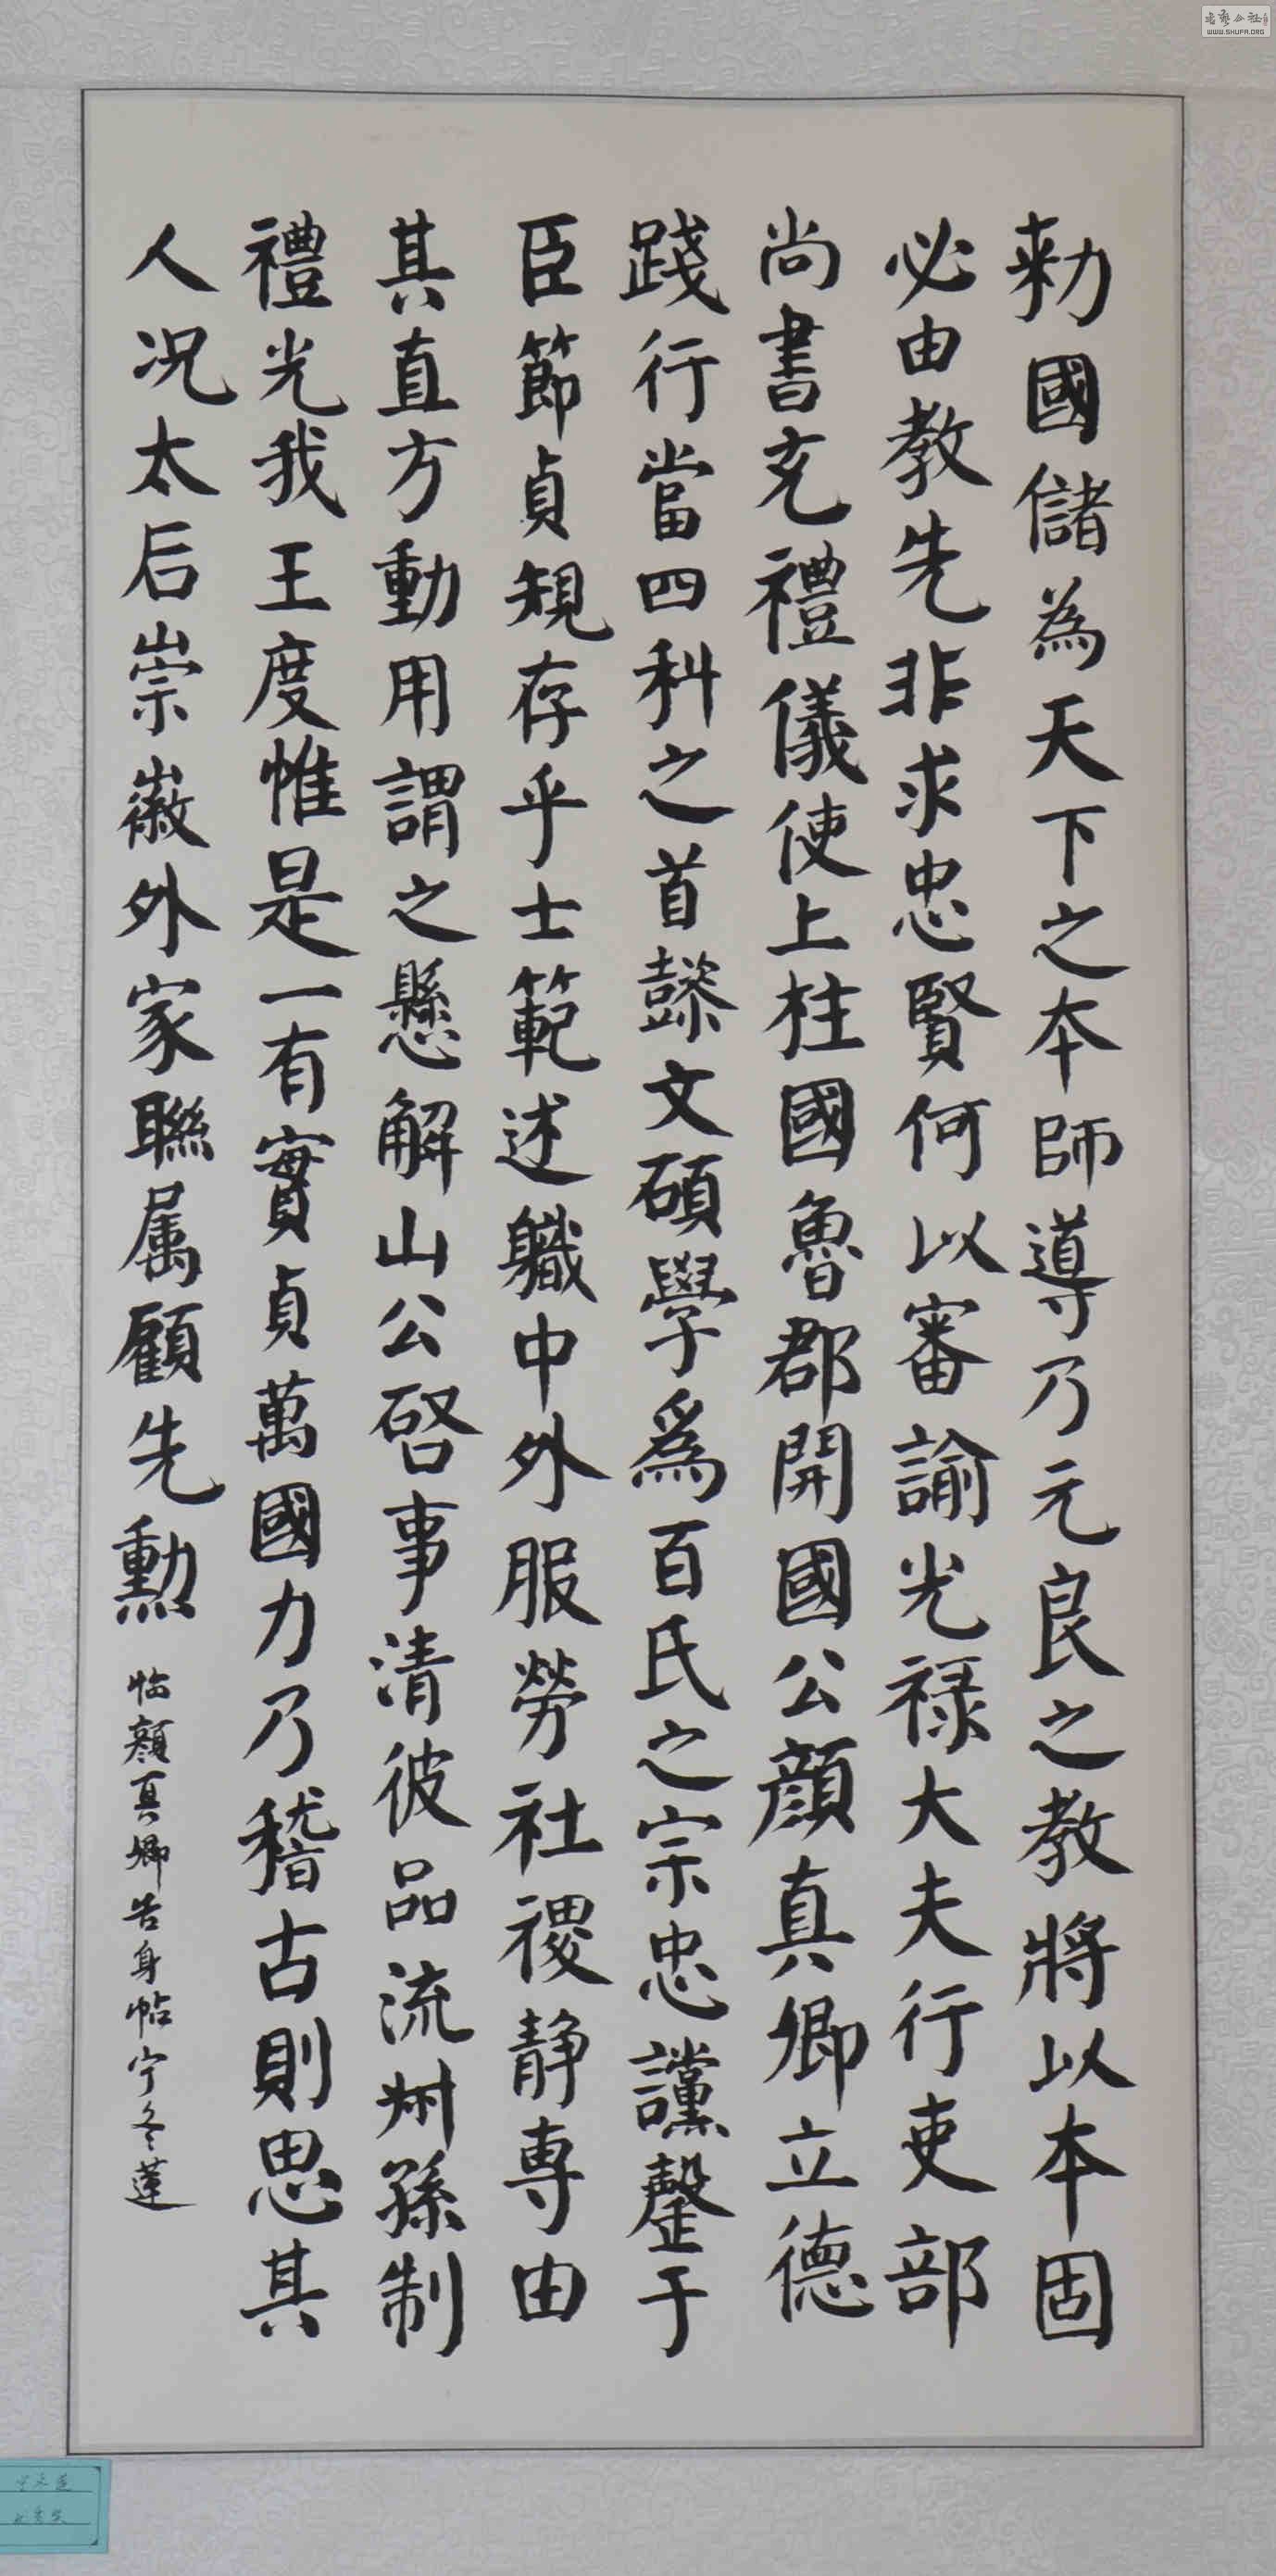 勅國儲為天下之本師導乃元良之教將以本固
必由教先非求忠賢何以審諭光禄大夫行吏部
尚書充禮儀使上柱國魯郡開國公顔真卿立德
踐行當四科之首懿文碩學爲百氏之宗忠讜罄于
臣節貞規存乎士範述職中外服勞社稷静専由
其直方動用謂之懸解山公啓事清彼品流叔孫制
禮光我王度惟是一有實貞萬國力乃稽古則思其
人况太后崇徽外家聯属顧先勲
临顔真卿告身帖宁冬莲
WWW.SHUFA.ORG